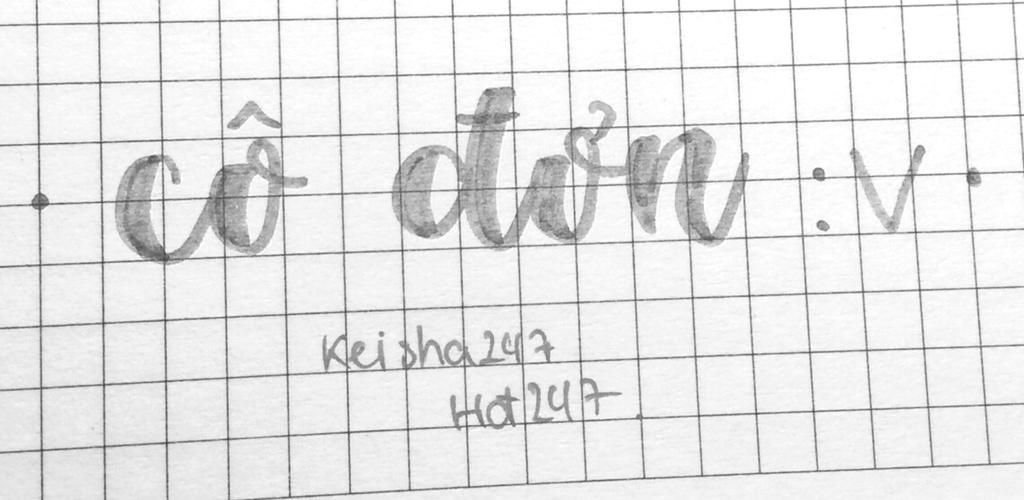 • cô đơn :v •
Keisha247
Hot247